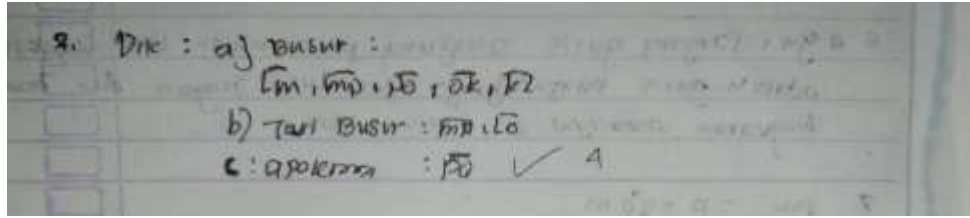 2. Dik : a) Busur :
l͞m, m͞p, p͞o, o͞k, k͞l
b) Tali Busur : m͞p, l͞o
c : apotema : p͞o ✓ 4